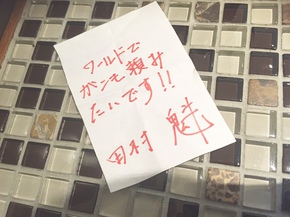 ワールドで
ガンモ頼み
たいです!!
田村 魁